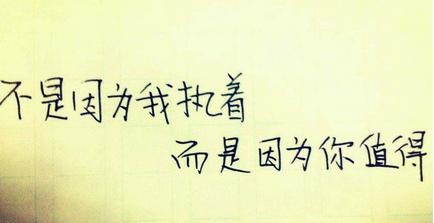 不是因为我执着
而是因为你值得